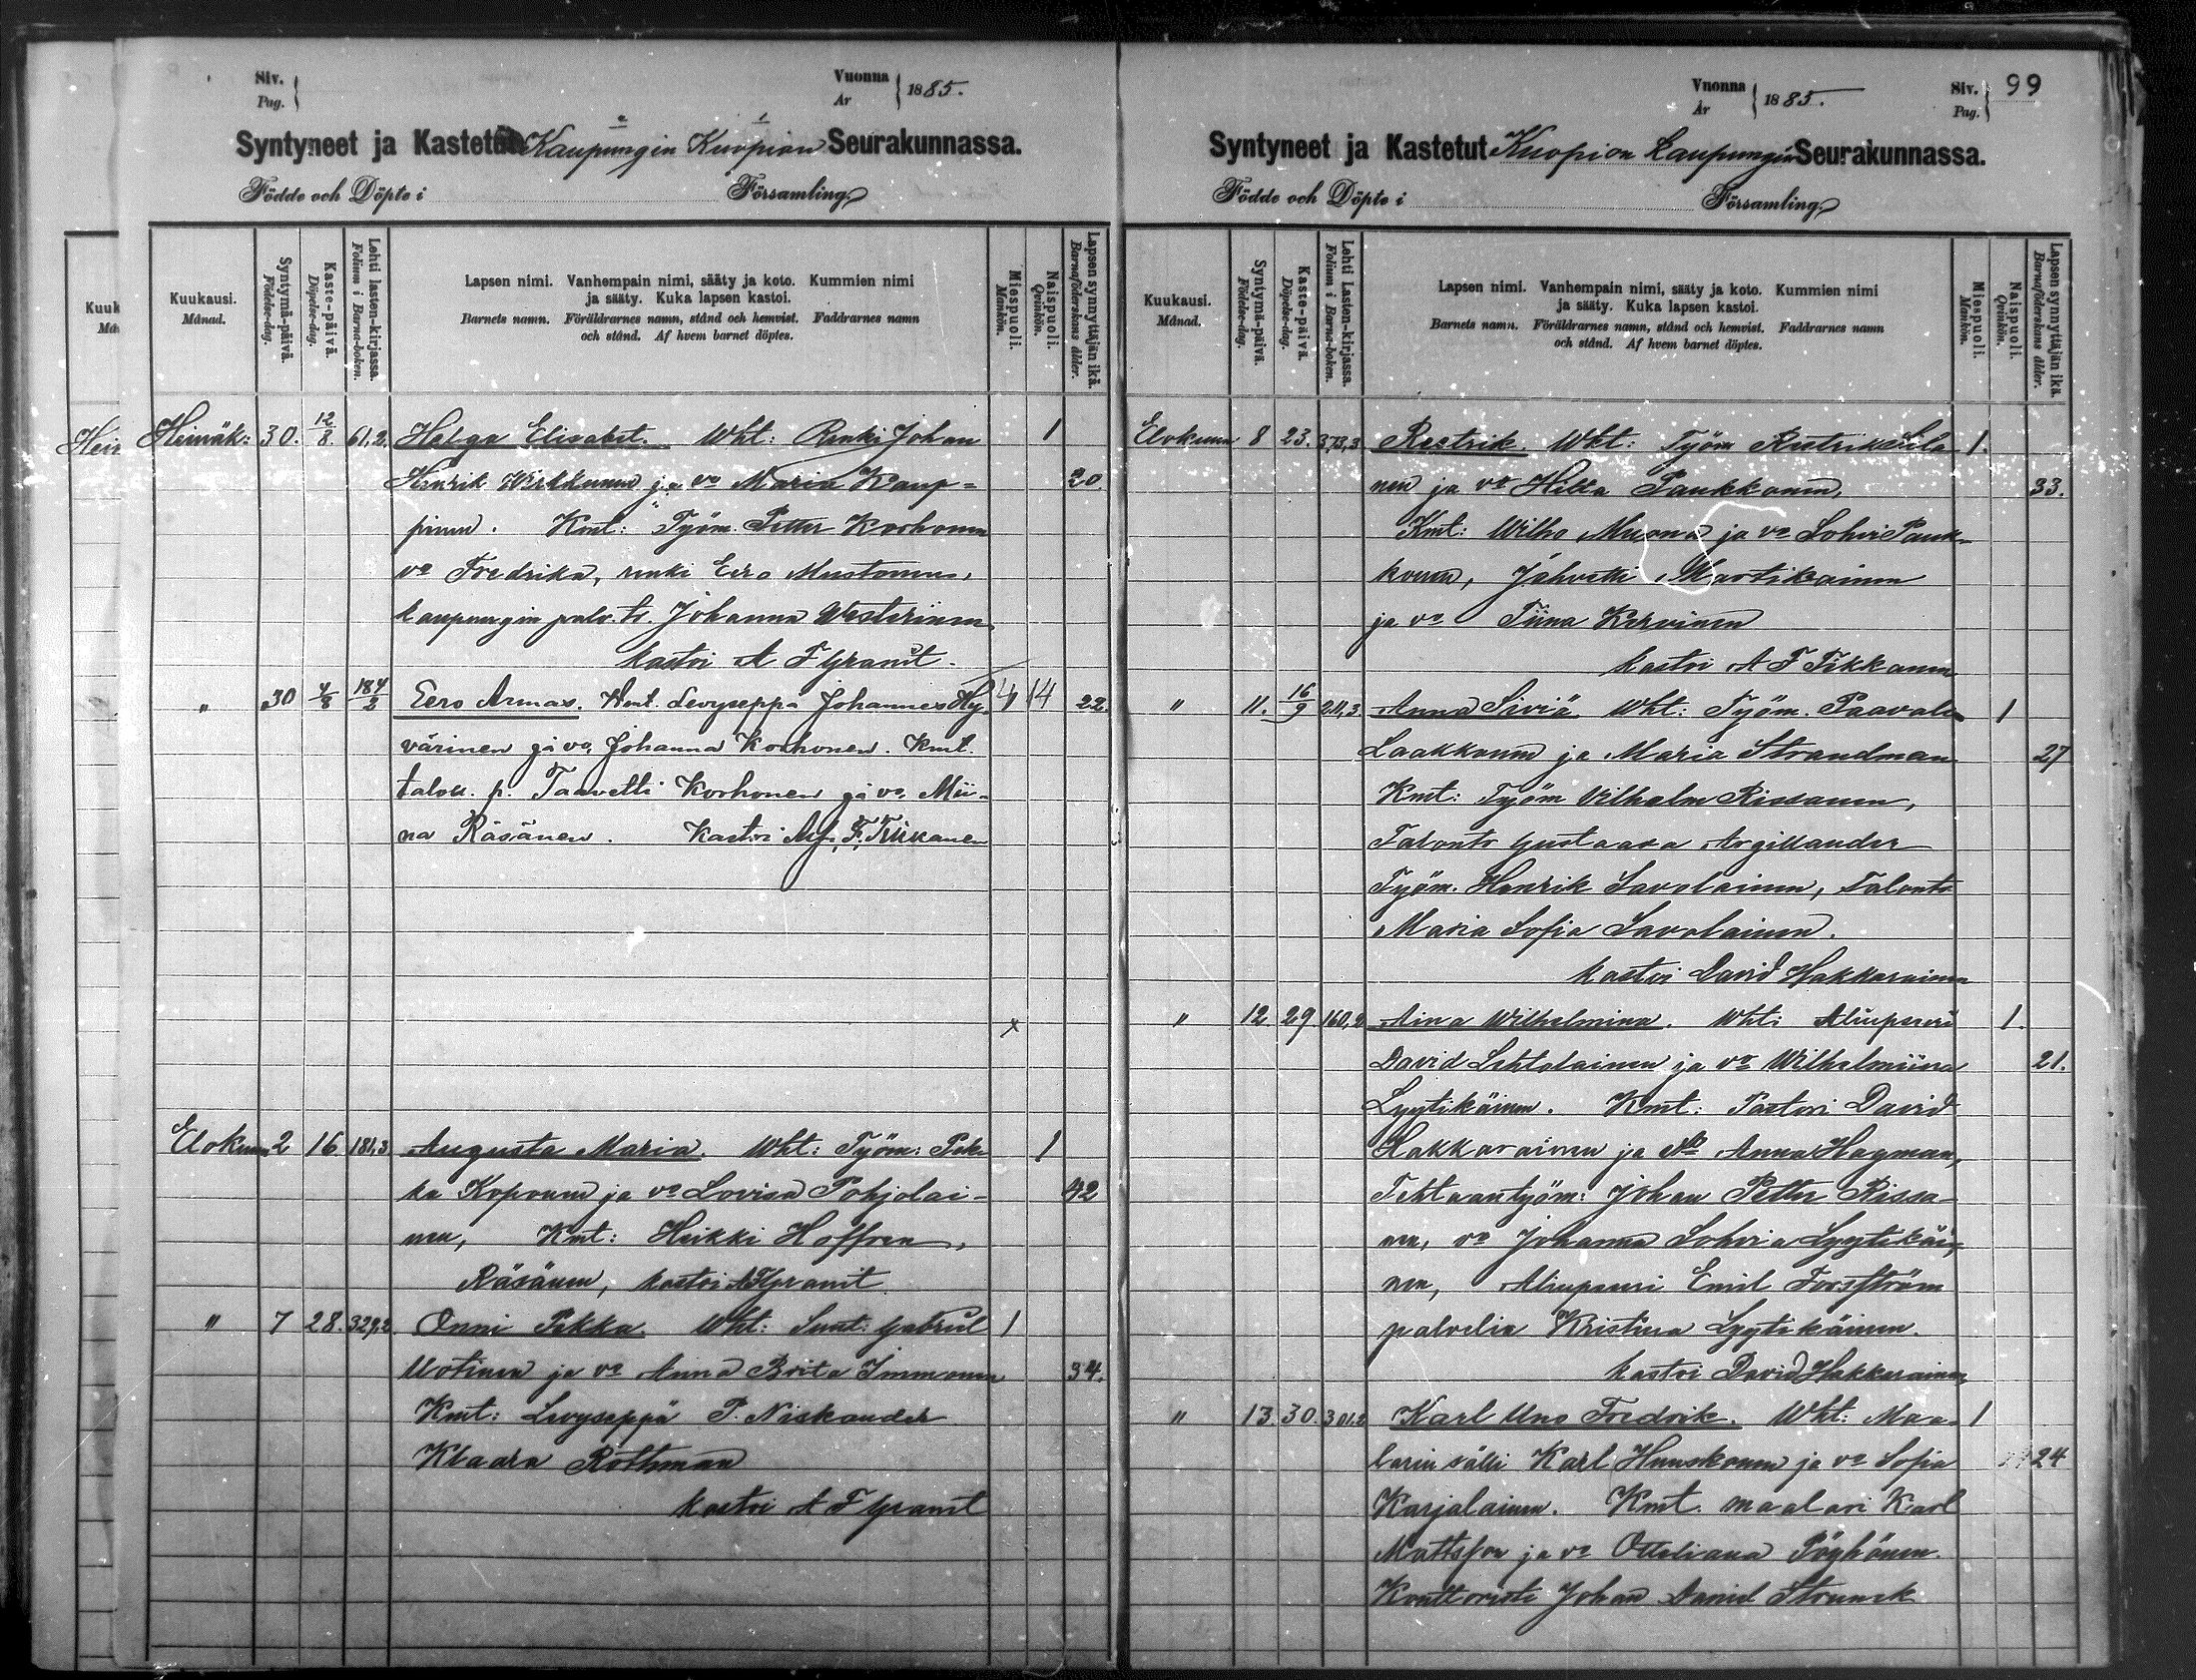 Siv.
Pag.
Vuonna
År
1885.
Syntyneet ja Kastetut Kaupungin Kuopion Seurakunnassa.
Födde och Döpte i Församling.
Kuukausi.
Månad.
Syntymä-päivä.
Födelse-dag.
Kaste-päivä.
Döpelse-dag.
Lehti lasten-kirjassa.
Folium i Barna-boken.
Lapsen nimi. Vanhempain nimi, sääty ja koto. Kummien nimi
ja sääty. Kuka lapsen kastoi.
Barnets namn. Föräldrarnes namn, stånd och hemvist. Faddrarnes namn
och stånd. Af hvem barnet döptes.
Miespuoli.
Mankön.
Naispuoli.
Qvinkön.
Lapsen synnyttäjän ikä.
Barnaföderskans ålder.
Heinäk: 30. 12/8 61,2. Helga Elisabet. Wht: Renki Johan 1
Henrik Wirkkunen ja vo Maria Kaup= 20.
pinen. Kmt: Työm. Petter Korhonen
vo Fredrika, renki Eero Mustonen,
kaupungin palv. tr. Johanna Westerinen
kastoi A F Granit.
" 30 4/8 184/2 Eero Armas. Wmt. Levyseppä Johannes Hy- 4 14 22.
värinen ja vo. Johanna Korhonen. Kmt.
talou. p. Taavetti Korhonen ja vo. Mii-
na Räsänen. Kastoi A. F. Tikkanen
x
Elokuun 2 16 181,3 Augusta Maria. Wht: Työm: Pek- 1
ka Koponen ja vo Lovisa Pohjolai- 42
nen, Kmt: Heikki Hoffren,
Räsänen, kastoi A F Granit
" 7 28. 329,2. Onni Pekka. Wht: Sunt. Gabriel 1
Uotinen ja vo Anna Brita Immonen 34.
Kmt: Levyseppä P. Niskander
Klaara Rothman
kastoi A F Granit
Vuonna
År
1885.
Siv.
Pag.
99
Syntyneet ja Kastetut Kuopion Kaupungin Seurakunnassa.
Födde och Döpte i Församling.
Kuukausi.
Månad.
Syntymä-päivä.
Födelse-dag.
Kaste-päivä.
Döpelse-dag.
Lehti Lasten-kirjassa.
Folium i Barna-boken.
Lapsen nimi. Vanhempain nimi, sääty ja koto. Kummien nimi
ja sääty. Kuka lapsen kastoi.
Barnets namn. Föräldrarnes namn, stånd och hemvist. Faddrarnes namn
och stånd. Af hvem barnet döptes.
Miespuoli.
Mankön.
Naispuoli.
Qvinkön.
Lapsen synnyttäjän ikä.
Barnaföderskans ålder.
Elokuun 8 23. 373,3 Retrik. Wht: Työm Retrik 1.
nen ja vo Hilta Paukkonen, 33.
Kmt: Wilho Muona ja vo Sohvi Pauk-
konen, Jahvetti Martikainen
ja vo Tiina Kervinen
kastoi A F Tikkanen
" 11. 16/9 211,3. Anna Siviä Wht: Työm. Paavali 1
Laakkonen ja Maria Strandman 27
Kmt: Työm Vilhelm Rissanen,
Talontr Gustaava Argillander
Työm. Henrik Savolainen, Talontr
Maria Sofia Savolainen.
kastoi David Hakkarainen
" 12 29 160,2 Aina Wilhelmina. Wht: Aliupseeri 1.
David Lehtolainen ja vo Wilhelmiina 21.
Lyytikäinen. Kmt: Pastori David
Hakkarainen ja Anna Hagman,
Tehtaantyöm: Johan Petter Rissa-
nen, vo Johanna Sohvia Lyytikäi-
nen, Aliupseeri Emil Forsström
palvelia Kristina Lyytikäinen.
kastoi David Hakkarainen
" 13 30. 301,2 Karl Uno Fredrik. Wht: Maa- 1
larin sälli Karl Hunskonen ja vo Sofia 24
Karjalainen. Kmt. maalari Karl
Mattsson ja vo Otteliana Pöyhönen.
Konttoristi Johan Daniel Strunck